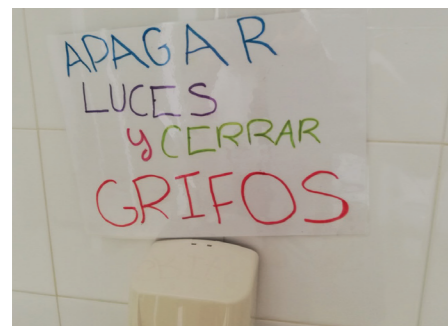 APAGAR
LUCES
y CERRAR
GRIFOS